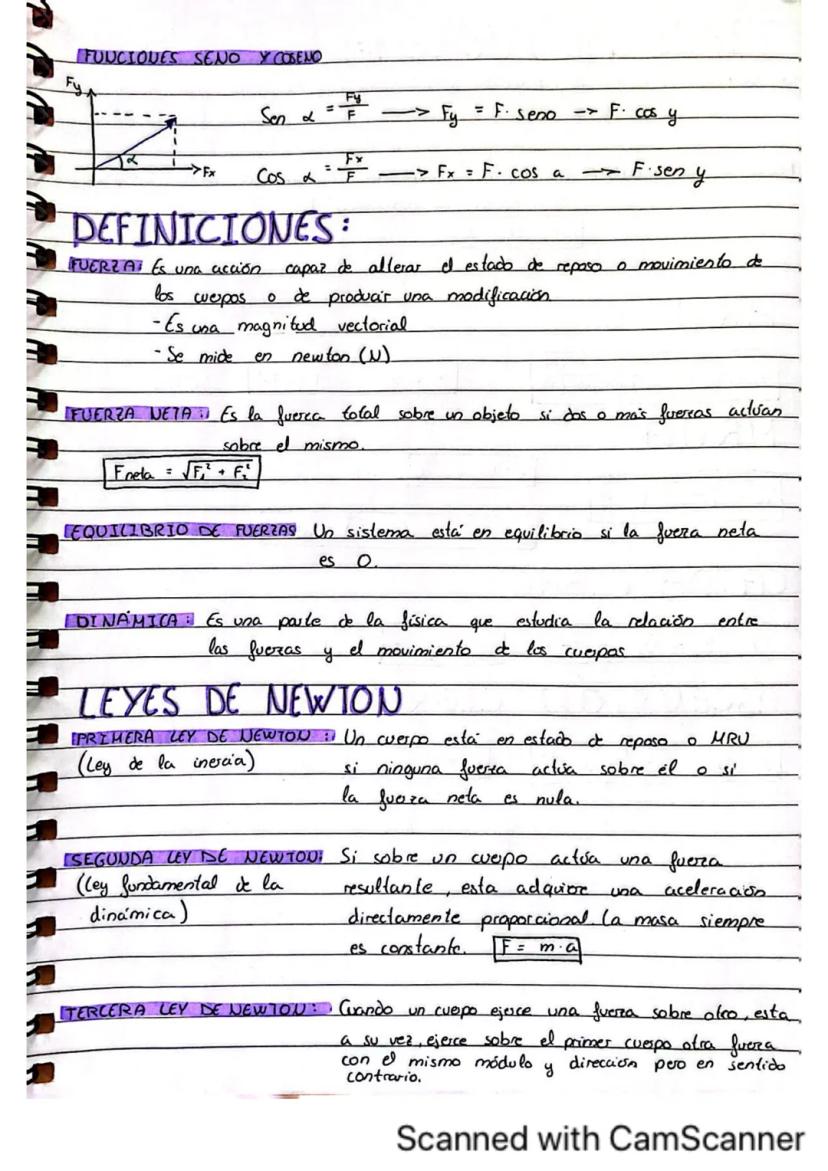 FUNCIONES SENO Y COSENO
Fy
Sen α = Fy/F → Fy = F. seno → F. cos y
α
Fx
Cos α = Fx/F → Fx = F. cos a → F.sen y
DEFINICIONES:
FUERZA: Es una acción capaz de alterar el estado de reposo o movimiento de
los cuerpos o de producir una modificación
-Es una magnitud vectorial
-Se mide en newton (N)
FUERZA NETA: Es la fuerza total sobre un objeto si dos o más fuerzas actúan
sobre el mismo.
Fneta = √F₁² + F₂²
EQUILIBRIO DE FUERZAS Un sistema está en equilibrio si la fuerza neta
es 0.
DINÁMICA: Es una parte de la física que estudia la relación entre
las fuerzas y el movimiento de los cuerpos
LEYES DE NEWTON
PRIMERA LEY DE NEWTON: Un cuerpo está en estado de reposo o MRU
(Ley de la inercia) si ninguna fuerza actúa sobre él o si
la fuerza neta es nula.
SEGUNDA LEY DE NEWTON: Si sobre un cuerpo actúa una fuerza
(Ley fundamental de la resultante, esta adquiere una aceleración
dinámica) directamente proporcional. La masa siempre
es constante. F = m·a
TERCERA LEY DE NEWTON: Cuando un cuerpo ejerce una fuerza sobre otro, esta
a su vez, ejerce sobre el primer cuerpo otra fuerza
con el mismo módulo y dirección pero en sentido
contrario.
Scanned with CamScanner